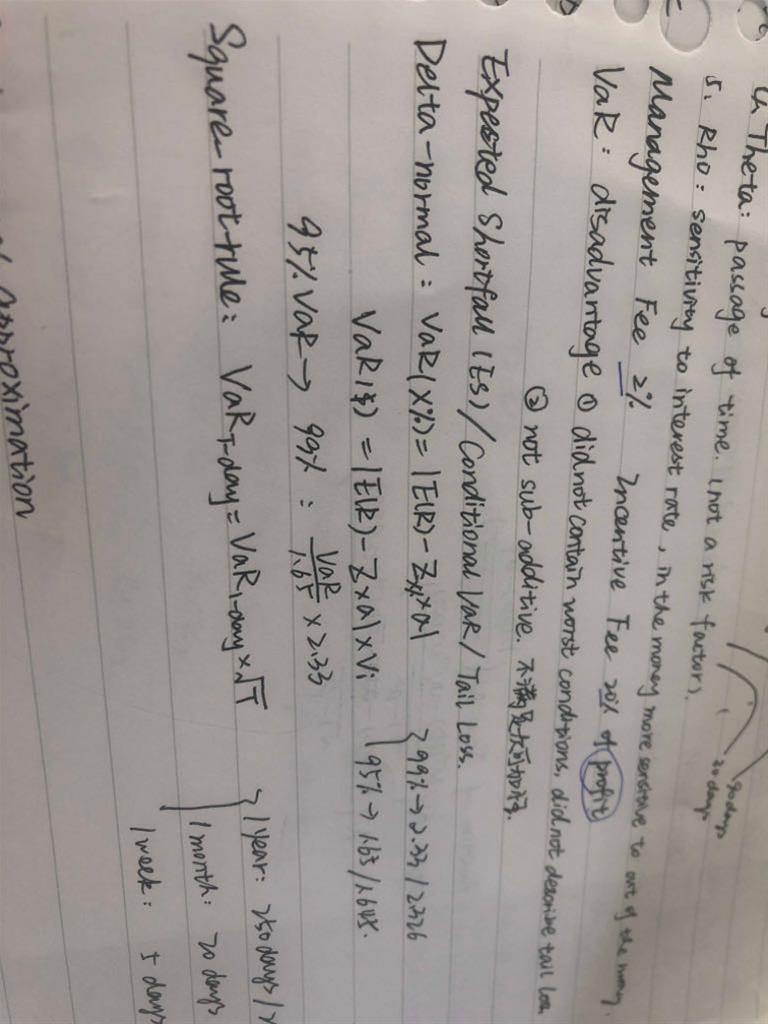 4. Theta: passage of time. (not a risk factor).
5. Rho: sensitivity to interest rate, in the money more sensitive to out of the money.
90 days
30 days
Management Fee 2% Incentive Fee 20% of profit
VaR: disadvantage ① did not contain worst conditions, did not describe tail loss
② not sub-additive. 不满足次可加性.
Expected Shortfall (ES) / Conditional VaR / Tail Loss.
Delta-normal: VaR(X%) = |E(R) - Zx% × σ| 99% → 2.33 / 2.326
VaR($) = |E(R) - Z × σ| × Vi 95% → 1.65 / 1.645.
95% VaR → 99%: VaR/1.65 × 2.33
Square-root rule: VaR T-day = VaR 1-day × √T 1 year: 250 days
1 month: 20 days
1 week: 5 days
Approximation